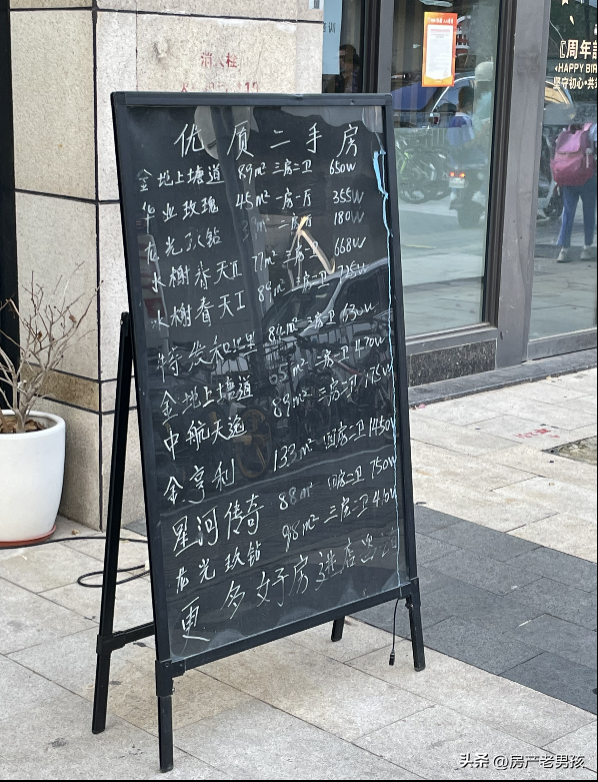 消火栓
优质二手房
金地上塘道 89m² 三房二卫 650W
华业玫瑰 45m² 一房一厅 355W
龙光玖钻 180W
水榭春天Ⅱ 77m² 三房 668W
水榭春天Ⅰ 89m² 三房二卫 725W
特发和平里 630W
金地上塘道 65m² 二房一卫 470W
中航天逸 89m² 三房二卫
金亨利 133m² 四房二卫 1450W
星河传奇 88m² 750W
龙光玖钻 98m² 三房二卫
更多好房进店
周年
HAPPY BIR
坚守初心·共
头条 @房产老男孩